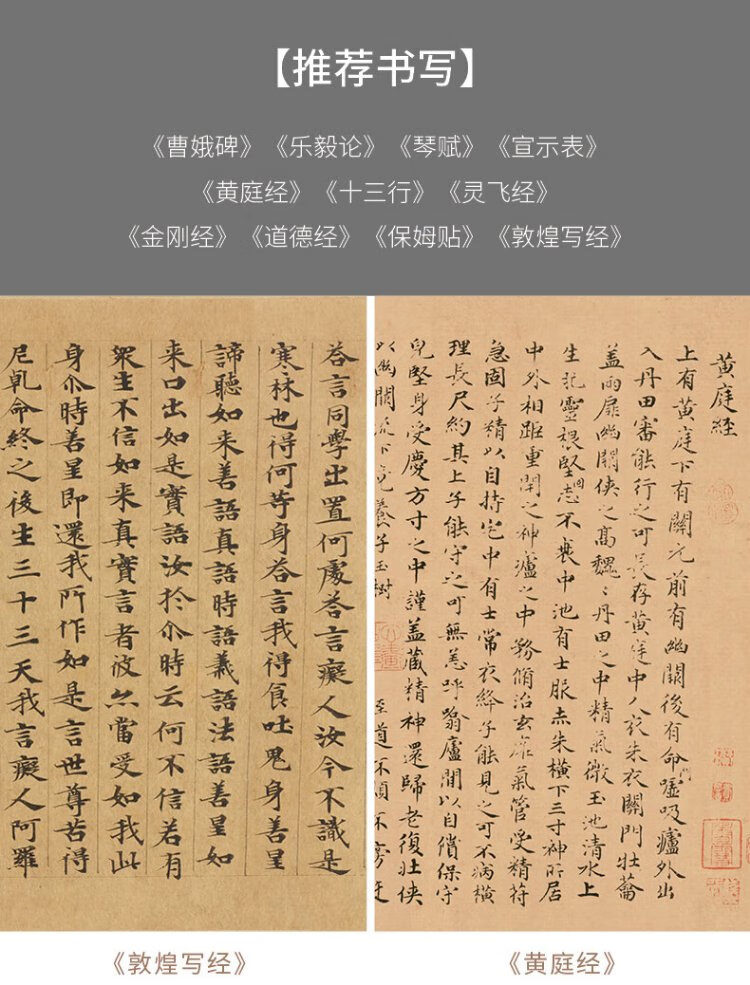 【推荐书写】
《曹娥碑》《乐毅论》《琴赋》《宣示表》
《黄庭经》《十三行》《灵飞经》
《金刚经》《道德经》《保姆贴》《敦煌写经》
荅言同學出置何處荅言癡人汝今不識是
寒林也得何等身荅言我得食吐鬼身善星
諦聽如来善語真語時語義語法語善星如
来口出如是實語汝於尒時云何不信若有
衆生不信如来真實言者彼亦當受如我此
身尒時善星即還我所作如是言世尊苦得
尼乹命終之後生三十三天我言癡人阿羅
黄庭经
上有黄庭下有關元前有幽關後有命嘘吸廬外出
入丹田審能行之可長存黄庭中人衣朱衣關門壯籥
盖兩扉幽關侠之高魏:丹田之中精氣微玉池清水上
生肥靈根堅志不衰中池有士服赤朱横下三寸神所居
中外相距重閇之神廬之中務脩治玄㢕氣管受精符
急固子精以自持宅中有士常衣絳子能見之可不病横
理長尺約其上子能守之可無恙呼翕廬間以自償保守
皃堅身受慶方寸之中謹盖蔵精神還歸老復壮侠
以幽關流下竟養子玉樹
至道不煩不旁迕
《敦煌写经》
《黄庭经》